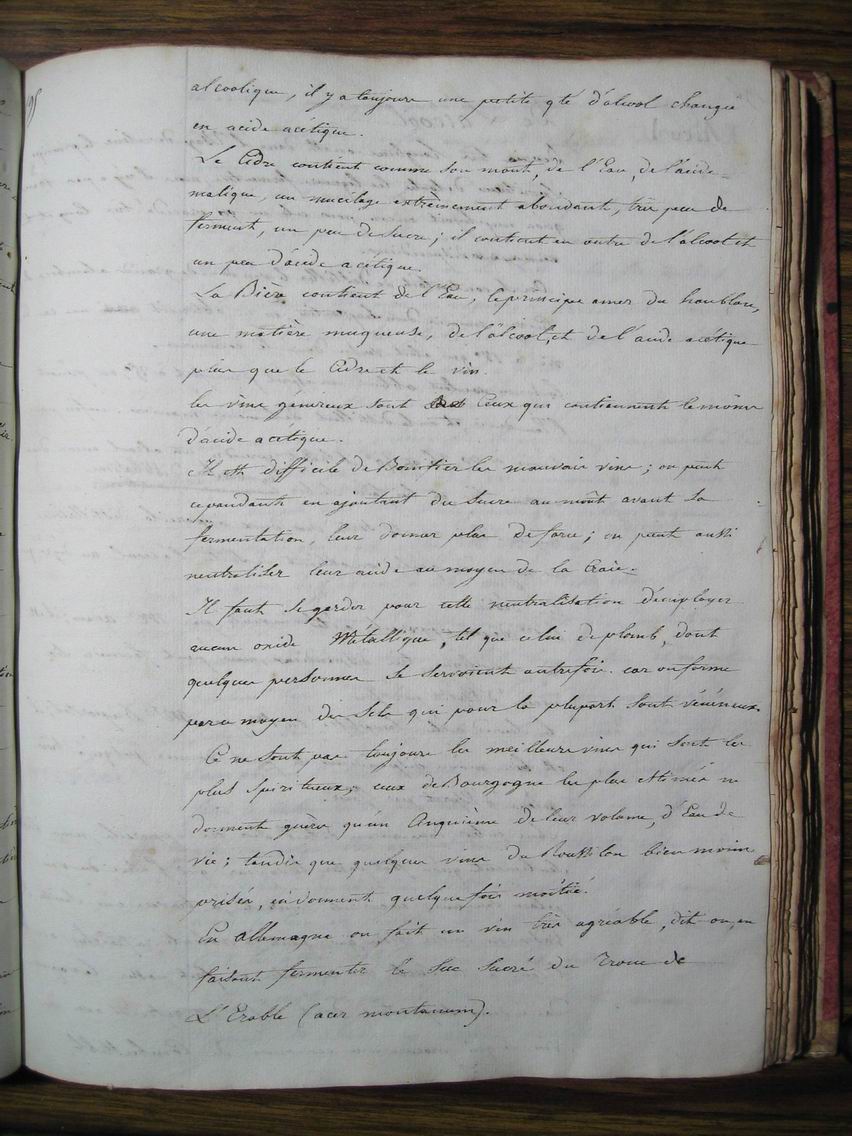 alcoolique, il y a toujours une petite qté d'alcool changée
en acide acétique.
Le Cidre contient comme son moût, de l'Eau, de l'acide
malique, un mucilage extrèmement abondant, très peu de
ferment, un peu de sucre; il contient en outre de l'alcool et
un peu d'acide acétique.
La Bière contient de l'Eau, le principe amer du houblon,
une matière muqueuse, de l'alcool, et de l'acide acétique
plus que le Cidre et le vin.
les vins généreux sont ceux qui contiennent le moins
d'acide acétique.
Il est difficile de Bonifier les mauvais vins; on peut
cependant en ajoutant du sucre au moût avant sa
fermentation, leur donner plus de force; on peut aussi
neutraliser leur acide au moyen de la Craie.
Il faut se garder pour cette neutralisation d'employer
aucun oxide Métallique, tel que celui de plomb, dont
quelques personnes se servoient autrefois. car on forme
par ce moyen des Sels qui pour la plupart sont vénéneux.
Ce ne sont pas toujours les meilleurs vins qui sont les
plus spiritueux; ceux de Bourgogne les plus estimés ne
donnent guère qu'un Cinquième de leur volume, d'Eau de
vie; tandis que quelques vins du Roussilon bien moins
prisés, en donnent quelque fois moitié.
En allemagne on fait un vin très agréable, dit on, en
faisant fermenter le Suc sucré du Tronc de
L'Erable (acer montanum).
195